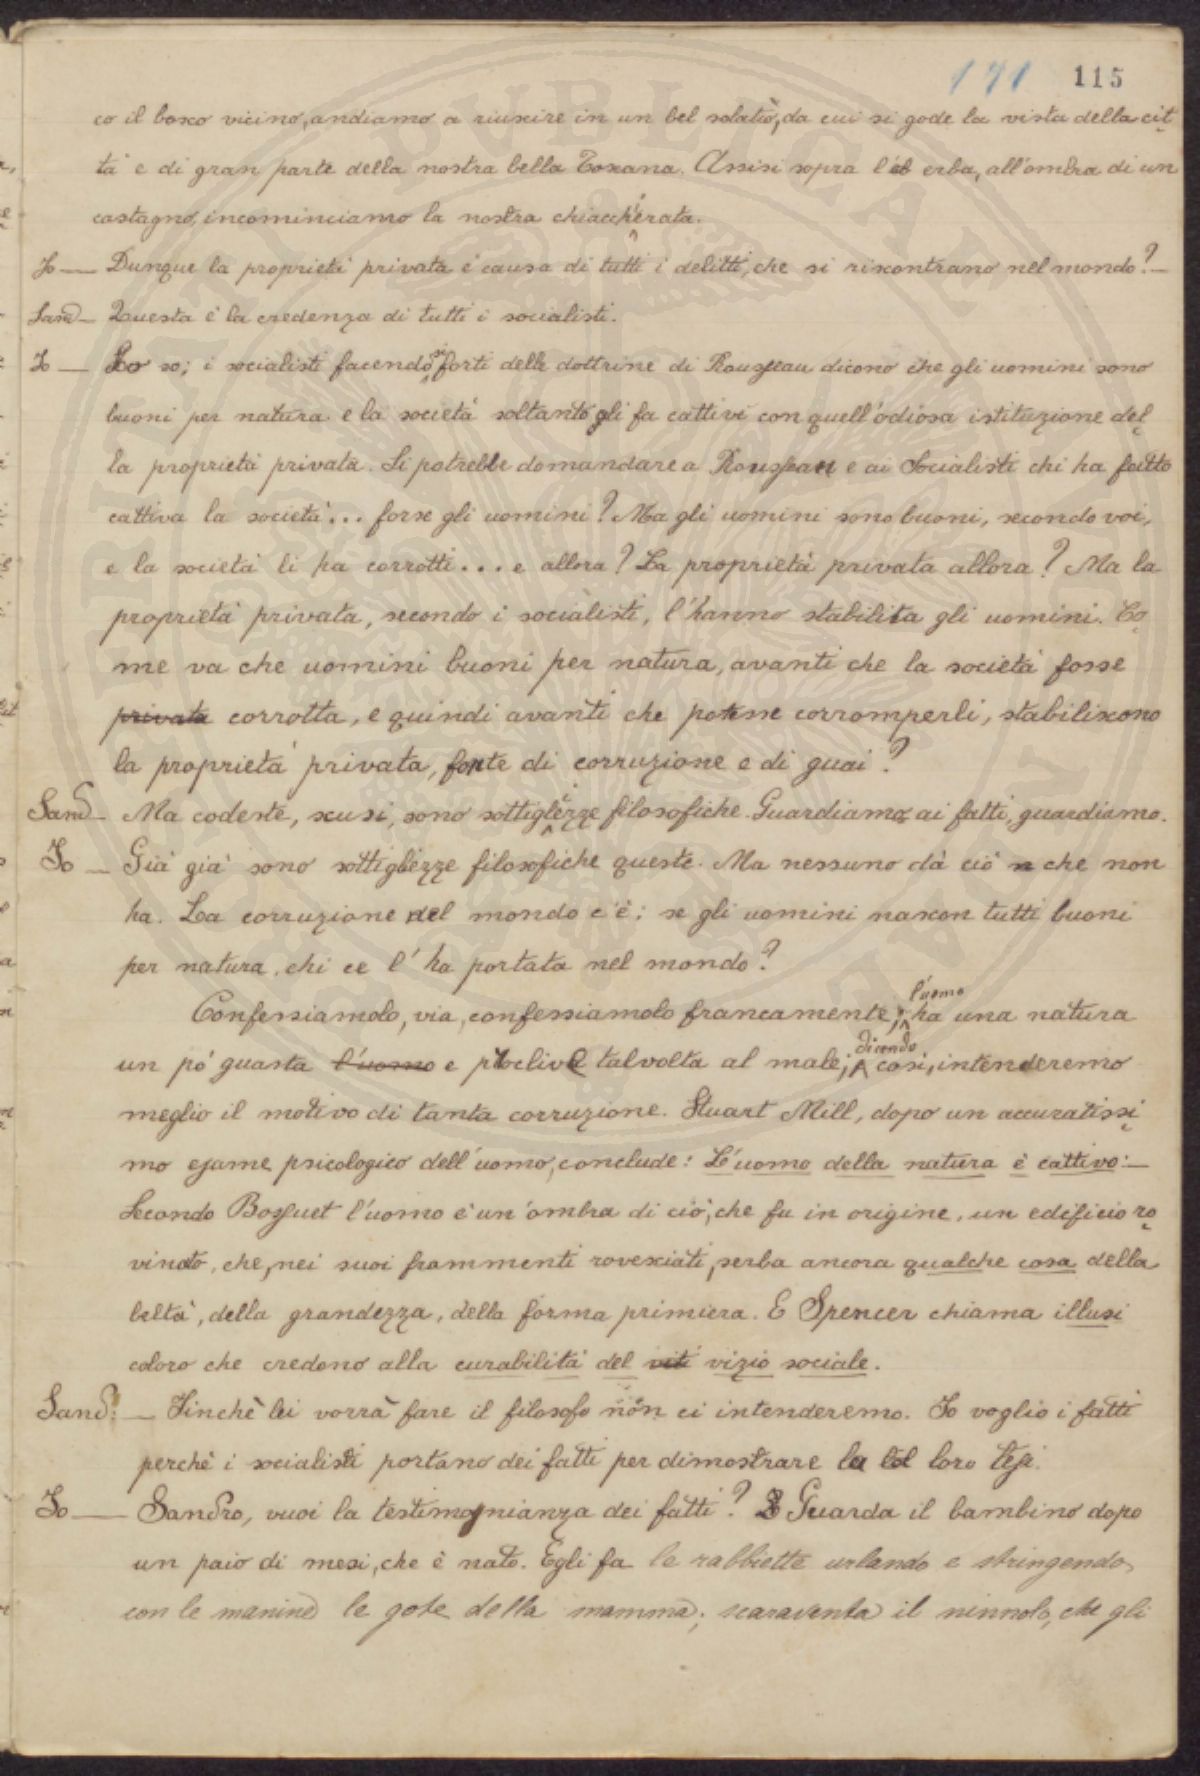 171 115
co il bosco vicino, andiamo a riuscire in un bel solatìo, da cui si gode la vista della cit-
tà e di gran parte della nostra bella Toscana. Assisi sopra l' erba, all'ombra di un
castagno, incominciamo la nostra chiaccherata.
Io — Dunque la proprietà privata è causa di tutti i delitti, che si riscontrano nel mondo? —
Sand — Questa è la credenza di tutti i socialisti.
Io — Lo so; i socialisti facendosi forti delle dottrine di Rousseau dicono che gli uomini sono
buoni per natura e la società soltanto gli fa cattivi con quell'odiosa istituzione del-
la proprietà privata. Si potrebbe domandare a Rousseau e ai Socialisti chi ha fatto
cattiva la società... forse gli uomini? Ma gli uomini sono buoni, secondo voi,
e la società li ha corrotti... e allora? La proprietà privata allora? Ma la
proprietà privata, secondo i socialisti, l'hanno stabilita gli uomini. Co-
me va che uomini buoni per natura, avanti che la società fosse
privata corrotta, e quindi avanti che potesse corromperli, stabiliscono
la proprietà privata, fonte di corruzione e di guai?
Sand — Ma codeste, scusi, sono sottigliezze filosofiche. Guardiamo ai fatti, guardiamo.
Io — Già già sono sottigliezze filosofiche queste. Ma nessuno dà ciò n che non
ha. La corruzione nel mondo c'è; se gli uomini nascon tutti buoni
per natura, chi ce l'ha portata nel mondo?
Confessiamolo, via, confessiamolo francamente; l'uomo ha una natura
un pò guasta l'uomo e proclive talvolta al male; dicendo così, intenderemo
meglio il motivo di tanta corruzione. Stuart Mill, dopo un accuratissi-
mo esame psicologico dell'uomo, conclude: L'uomo della natura è cattivo: —
Secondo Bossuet l'uomo è un'ombra di ciò, che fu in origine, un edificio ro-
vinato, che, nei suoi frammenti rovesciati, serba ancora qualche cosa della
beltà, della grandezza, della forma primiera. E Spencer chiama illusi
coloro che credono alla curabilità del viti vizio sociale.
Sand: — Finchè lei vorrà fare il filosofo non ci intenderemo. Io voglio i fatti
perchè i socialisti portano dei fatti per dimostrare la loro tesi.
Io — Sandro, vuoi la testimognianza dei fatti? Guarda il bambino dopo
un paio di mesi, che è nato. Egli fa le rabbiette urlando e stringendo
con le manine le gote della mamma; scaraventa il ninnolo, che gli